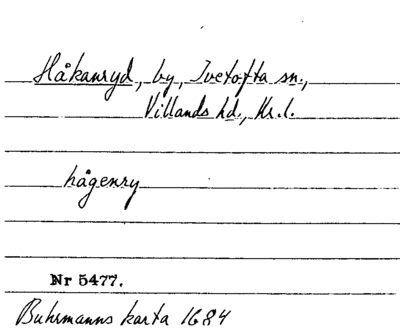 Håkanryd, by, Ivetofta sn.,
Villands hd., Kr.l.
hågenry
Nr 5477.
Buhrmanns karta 1684